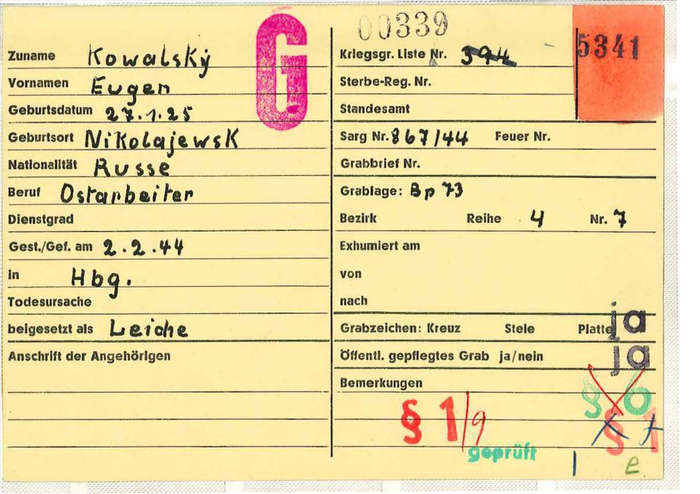 G
Zuname Kowalský
Vornamen Eugen
Geburtsdatum 27.1.25
Geburtsort Nikolajewsk
Nationalität Russe
Beruf Ostarbeiter
Dienstgrad
Gest./Gef. am 2.2.44
in Hbg.
Todesursache
beigesetzt als Leiche
Anschrift der Angehörigen
00339
5341
Kriegsgr. Liste Nr. 394
Sterbe-Reg. Nr.
Standesamt
Sarg Nr. 867/44 Feuer Nr.
Grabbrief Nr.
Grablage: Bp 73
Bezirk Reihe 4 Nr. 7
Exhumiert am
von
nach
Grabzeichen: Kreuz Stele Platte ja
Öffentl. gepflegtes Grab ja/nein ja
Bemerkungen
§ 6
§ 1/9 § 1
geprüft
e.